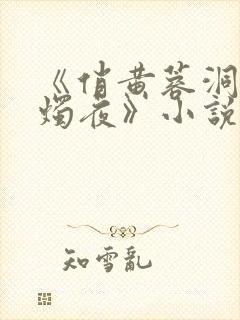 《俏黄蓉洞
烛夜》小説
知雪乱